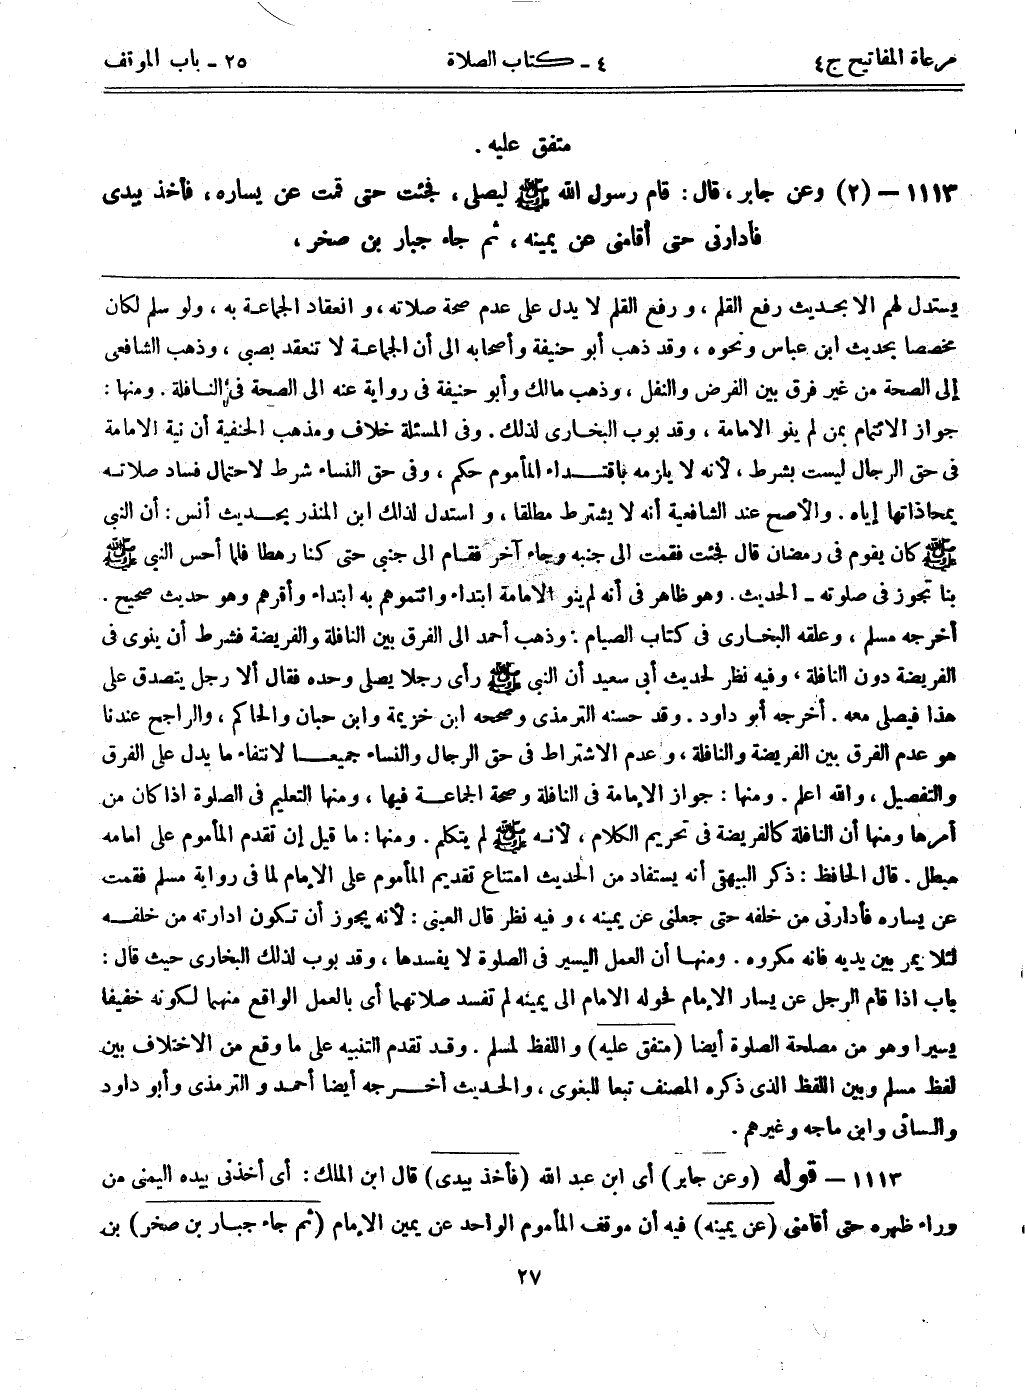 مرعاة المفاتيح ج٤ ٤ ـ كتاب الصلاة ٢٥ ـ باب الموقف
متفق عليه .
١١١٣ – (٢) وعن جابر ، قال : قام رسول الله ﷺ ليصلى ، فجئت حتى قمت عن يساره ، فأخذ بيدى
فأدارنى حتى أقامنى عن يمينه ، ثم جاء جبار بن صخر ،
يستدل لهم الا بحديث رفع القلم ، و رفع القلم لا يدل على عدم صحة صلاته ، و انعقاد الجماعة به ، ولو سلم لكان
مخصصا بحديث ابن عباس ونحوه ، وقد ذهب أبو حنيفة وأصحابه الى أن الجماعة لا تنعقد بصبى ، وذهب الشافعى
إلى الصحة من غير فرق بين الفرض والنفل ، وذهب مالك وأبو حنيفة فى رواية عنه الى الصحة فى النافلة . ومنها :
جواز الائتمام بمن لم ينو الامامة ، وقد بوب البخارى لذلك . وفى المسئلة خلاف ومذهب الحنفية أن نية الامامة
فى حق الرجال ليست بشرط ، لأنه لا يلزمه باقتداء المأموم حكم ، وفى حق النساء شرط لاحتمال فساد صلاته
بمحاذاتها إياه . والأصح عند الشافعية أنه لا يشترط مطلقا ، و استدل لذلك ابن المنذر بحديث أنس : أن النبي
ﷺ كان يقوم فى رمضان قال فجئت فقمت الى جنبه وجاء آخر فقام الى جنبي حتى كنا رهطا فلما أحس النبي ﷺ
بنا تجوز فى صلوته ـ الحديث . وهو ظاهر فى أنه لم ينو الامامة ابتداء وائتموهم به ابتداء وأقرهم وهو حديث صحيح .
أخرجه مسلم ، وعلقه البخارى فى كتاب الصيام . وذهب أحمد الى الفرق بين النافلة والفريضة فشرط أن ينوى فى
الفريضة دون النافلة ، وفيه نظر لحديث أبى سعيد أن النبي ﷺ رأى رجلا يصلى وحده فقال ألا رجل يتصدق على
هذا فيصلى معه . أخرجه أبو داود . وقد حسنه الترمذى وصححه ابن خزيمة وابن حبان والحاكم ، والراجح عندنا
هو عدم الفرق بين الفريضة والنافلة ، و عدم الاشتراط فى حق الرجال والنساء جميعا لانتفاء ما يدل على الفرق
والتفصيل ، والله اعلم . ومنها : جواز الإمامة فى النافلة وصحة الجماعة فيها ، ومنها التعليم فى الصلوة اذا كان من
أمرها ومنها أن النافلة كالفريضة فى تحريم الكلام ، لأنه ﷺ لم يتكلم . ومنها : ما قيل إن تقدم المأموم على امامه
مبطل . قال الحافظ : ذكر البيهقى أنه يستفاد من الحديث امتناع تقديم المأموم على الإمام لما فى رواية مسلم فقمت
عن يساره فأدارنى من خلفه حتى جعلنى عن يمينه ، و فيه نظر قال العينى : لأنه يجوز أن تكون ادارته من خلفه
لئلا يمر بين يديه فانه مكروه . ومنها أن العمل اليسير فى الصلوة لا يفسدها ، وقد بوب لذلك البخارى حيث قال :
باب اذا قام الرجل عن يسار الإمام فحوله الامام الى يمينه لم تفسد صلاتهما أى بالعمل الواقع منهما لكونه خفيفا
يسيرا وهو من مصلحة الصلوة أيضا (متفق عليه) واللفظ لمسلم . وقد تقدم التنبيه على ما وقع من الاختلاف بين
لفظ مسلم وبين اللفظ الذى ذكره المصنف تبعا للبغوى ، والحديث أخرجه أيضا أحمد و الترمذى وأبو داود
والسائى وابن ماجه وغيرهم .
١١١٣ – قوله (وعن جابر) أى ابن عبد الله (فأخذ بيدى) قال ابن الملك : أى أخذنى بيده اليمنى من
وراء ظهره حتى أقامنى (عن يمينه) فيه أن موقف المأموم الواحد عن يمين الإمام (ثم جاء جبار بن صخر) بن
٢٧